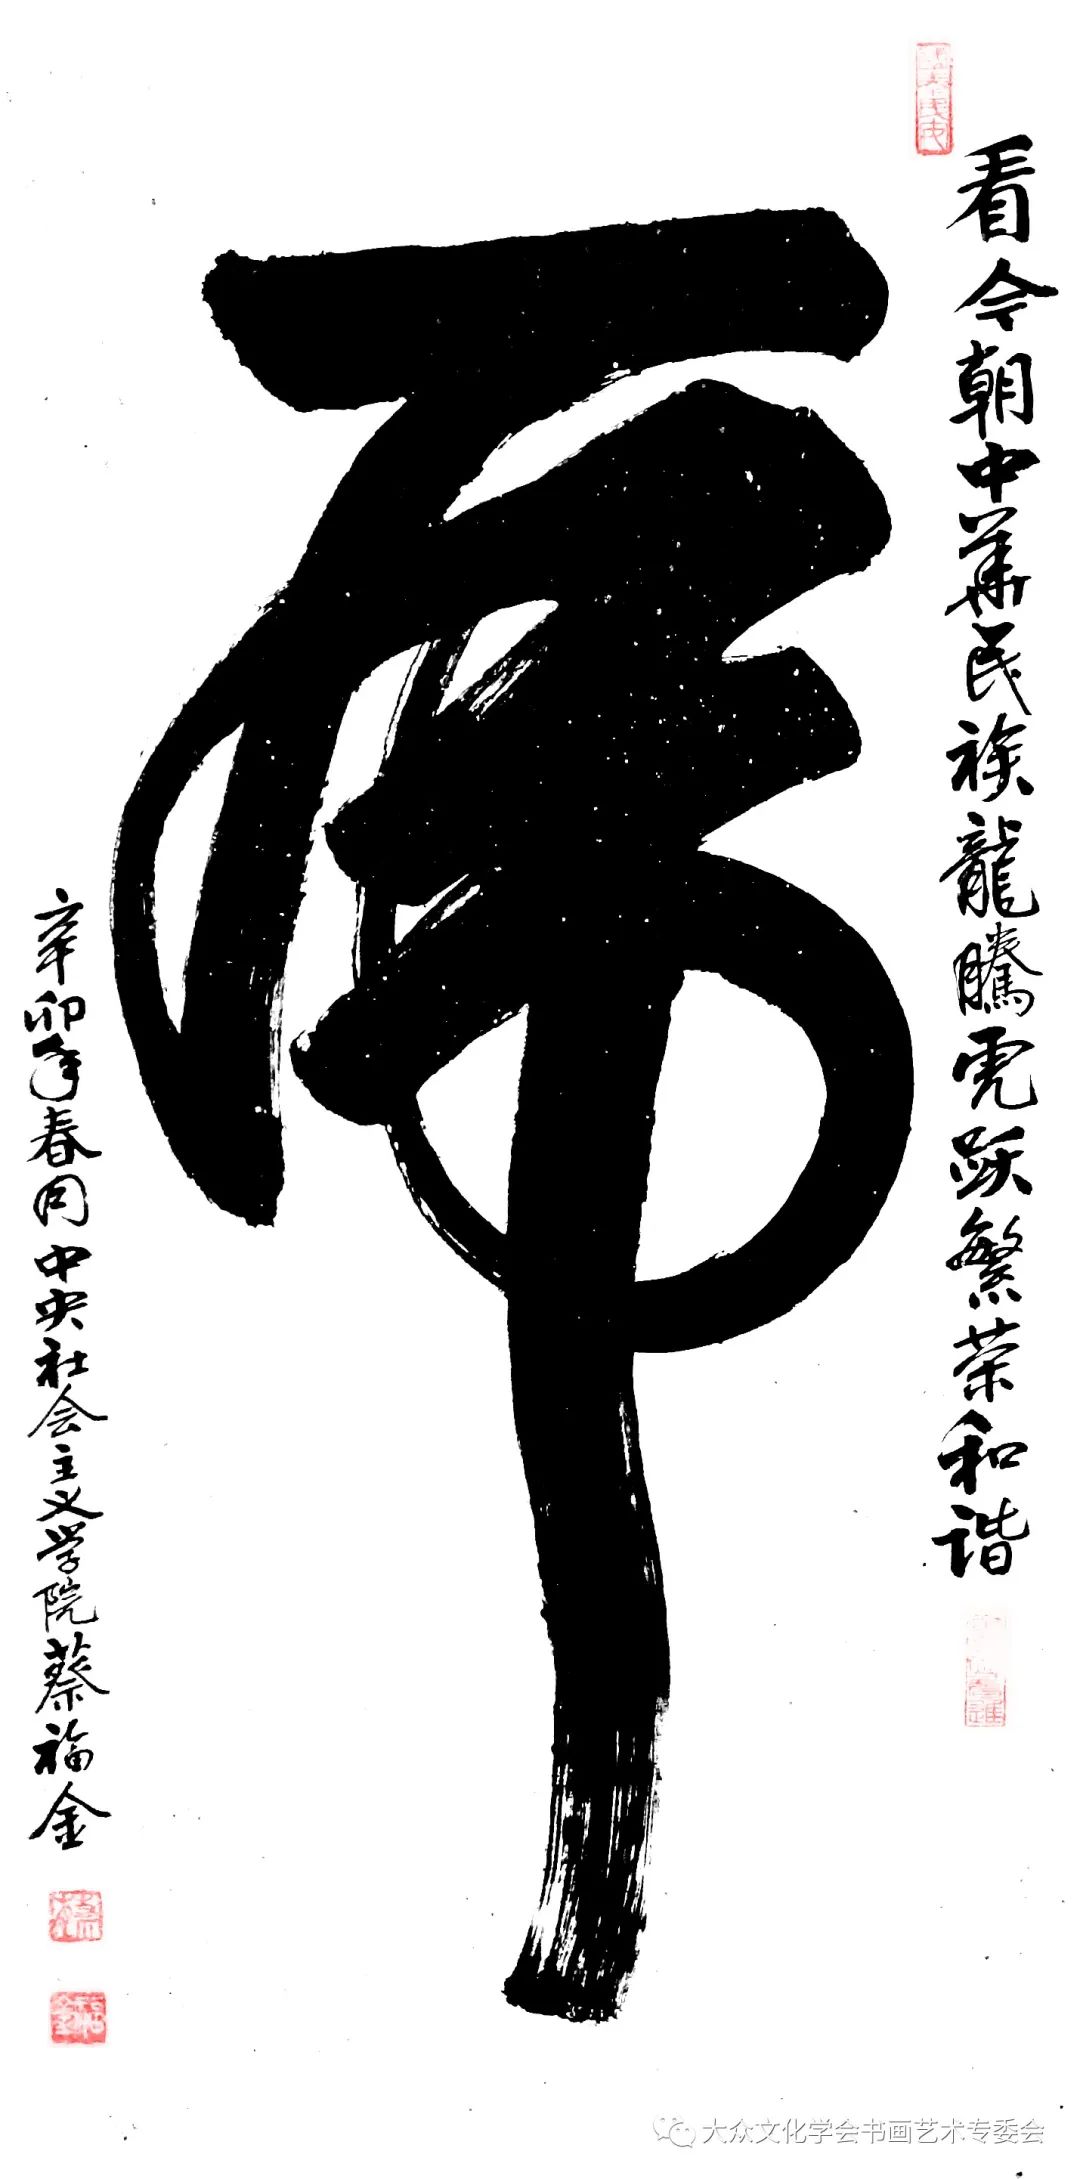 看今朝中華民族龍騰虎跃繁荣和谐
虎
辛卯年春月中央社会主义学院蔡福金
大众文化学会书画艺术专委会